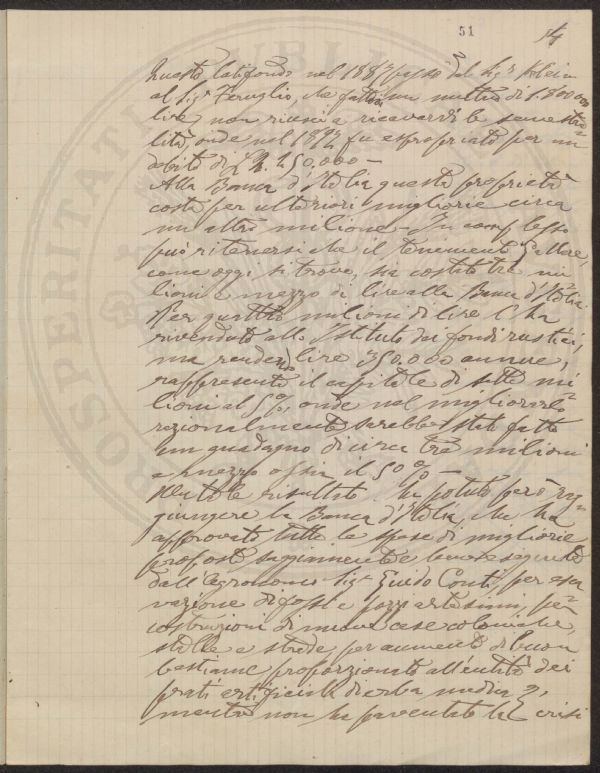 51
Questo latifondo nel 1887 passò dal Sig.r Klein
al Sig.r Feruglio, che fattovi un mutuo di 1.800.000
lire non riuscì a ricavarvi le semestra=
lità, onde nel 1892 fu espropriato per un
debito di
Alla Banca d'Italia questa proprietà
costa per ulteriori migliorie circa
un altro milione - In complesso
può ritenersi che il tenimento
come oggi si trova, ha costato tre mi=
lioni e mezzo di lire alla Banca d'Italia.
Per quattro milioni di lire l'ha
rivenduto allo Istituto dei fondi rustici,
ma rendendo lire 350.000 annue,
rappresenta il capitale di sette mi=
lioni al 5%, onde nel migliorarlo
razionalmente sarebbe stato fatto
un guadagno di circa tre milioni
e mezzo ossia il 50% -
risultato ha potuto però rag=
giungere la Banca d'Italia, che ha
approvato tutte le spese di migliorie
proposte sapientemente e bene eseguite
dall'Agronomo Sig.r Guido Conti, per esca=
vazione di fossi e pozzi artesiani, per
costruzioni di nuove case coloniche,
stalle e strade, per aumento di buon
bestiame proporzionato all'entità dei
prati artificiali di erba medica,
mentre non ha paventato la crisi